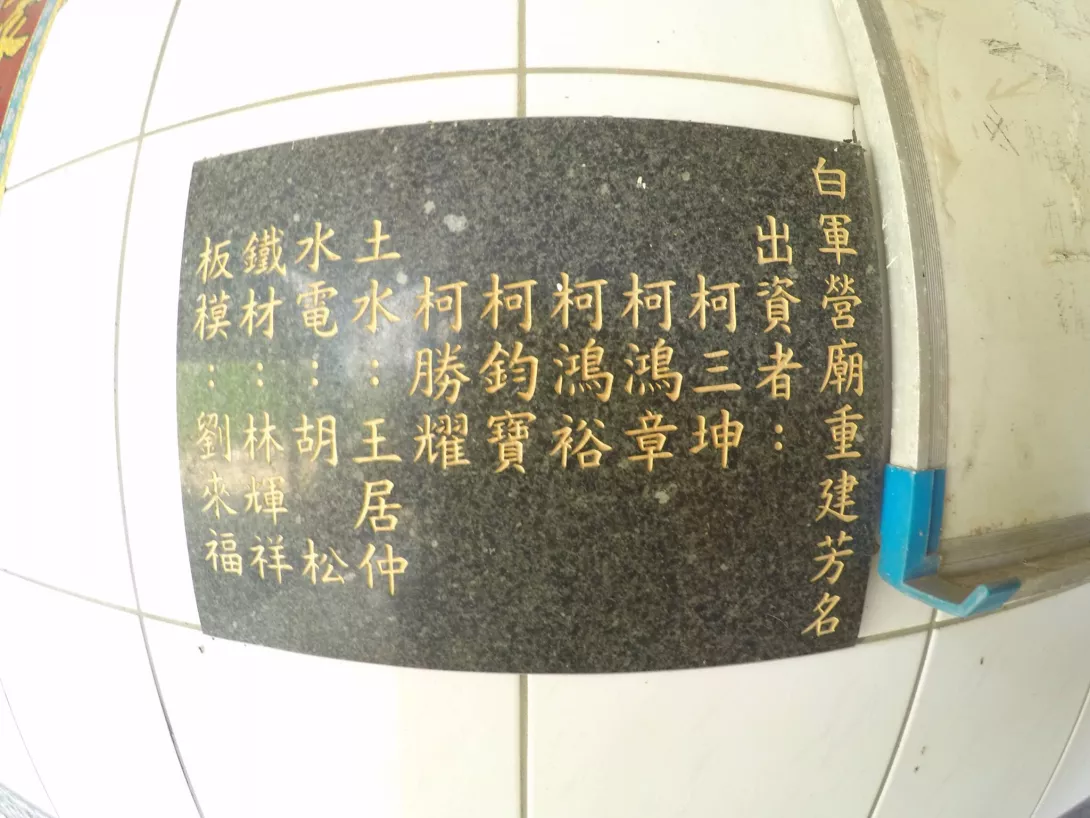 白軍營廟重建芳名
出資者：
柯三坤
柯鴻章
柯鴻裕
柯鈞寶
柯勝耀
土水：王居仲
水電：胡松
鐵材：林輝祥
板模：劉來福